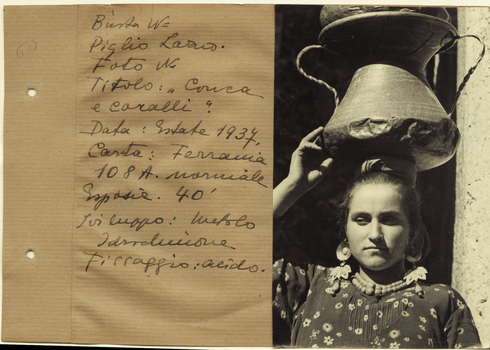 Busta Nº
Piglio Lazio.
Foto Nº
Titolo: „Conca
e coralli".
Data: Estate 1937,
Carta: Ferrania
108 A. normale
Esposiz. 40'
Sviluppo: Metolo
Idrochinone
Fissaggio: acido.